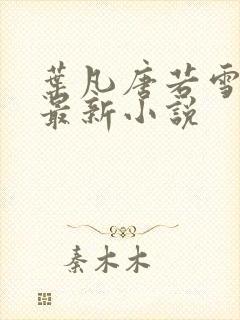 葉凡唐若雪
最新小說
秦木木